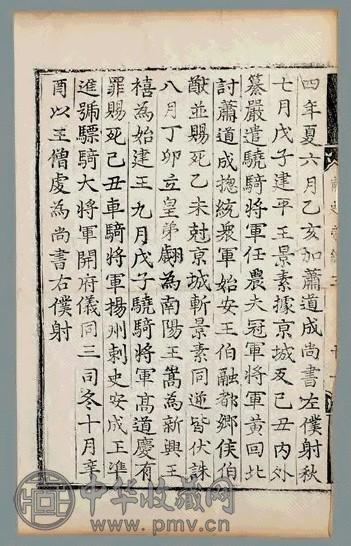 四年夏六月乙亥加蕭道成尚書左僕射秋
七月戊子建平王景素據京城反己丑內外
纂嚴遣驍騎將軍任農夫冠軍將軍黃回北
討蕭道成捴統衆軍始安王伯融都鄉侯伯
猷並賜死乙未尅京城斬景素同逆皆伏誅
八月丁卯立皇弟翽為南陽王嵩為新興王
禧為始建王九月戊子驍騎將軍高道慶有
罪賜死己丑車騎將軍揚州刺史安成王準
進號驃騎大將軍開府儀同三司冬十月辛
酉以王僧虔為尚書右僕射
中华收藏网
www.pmv.cn